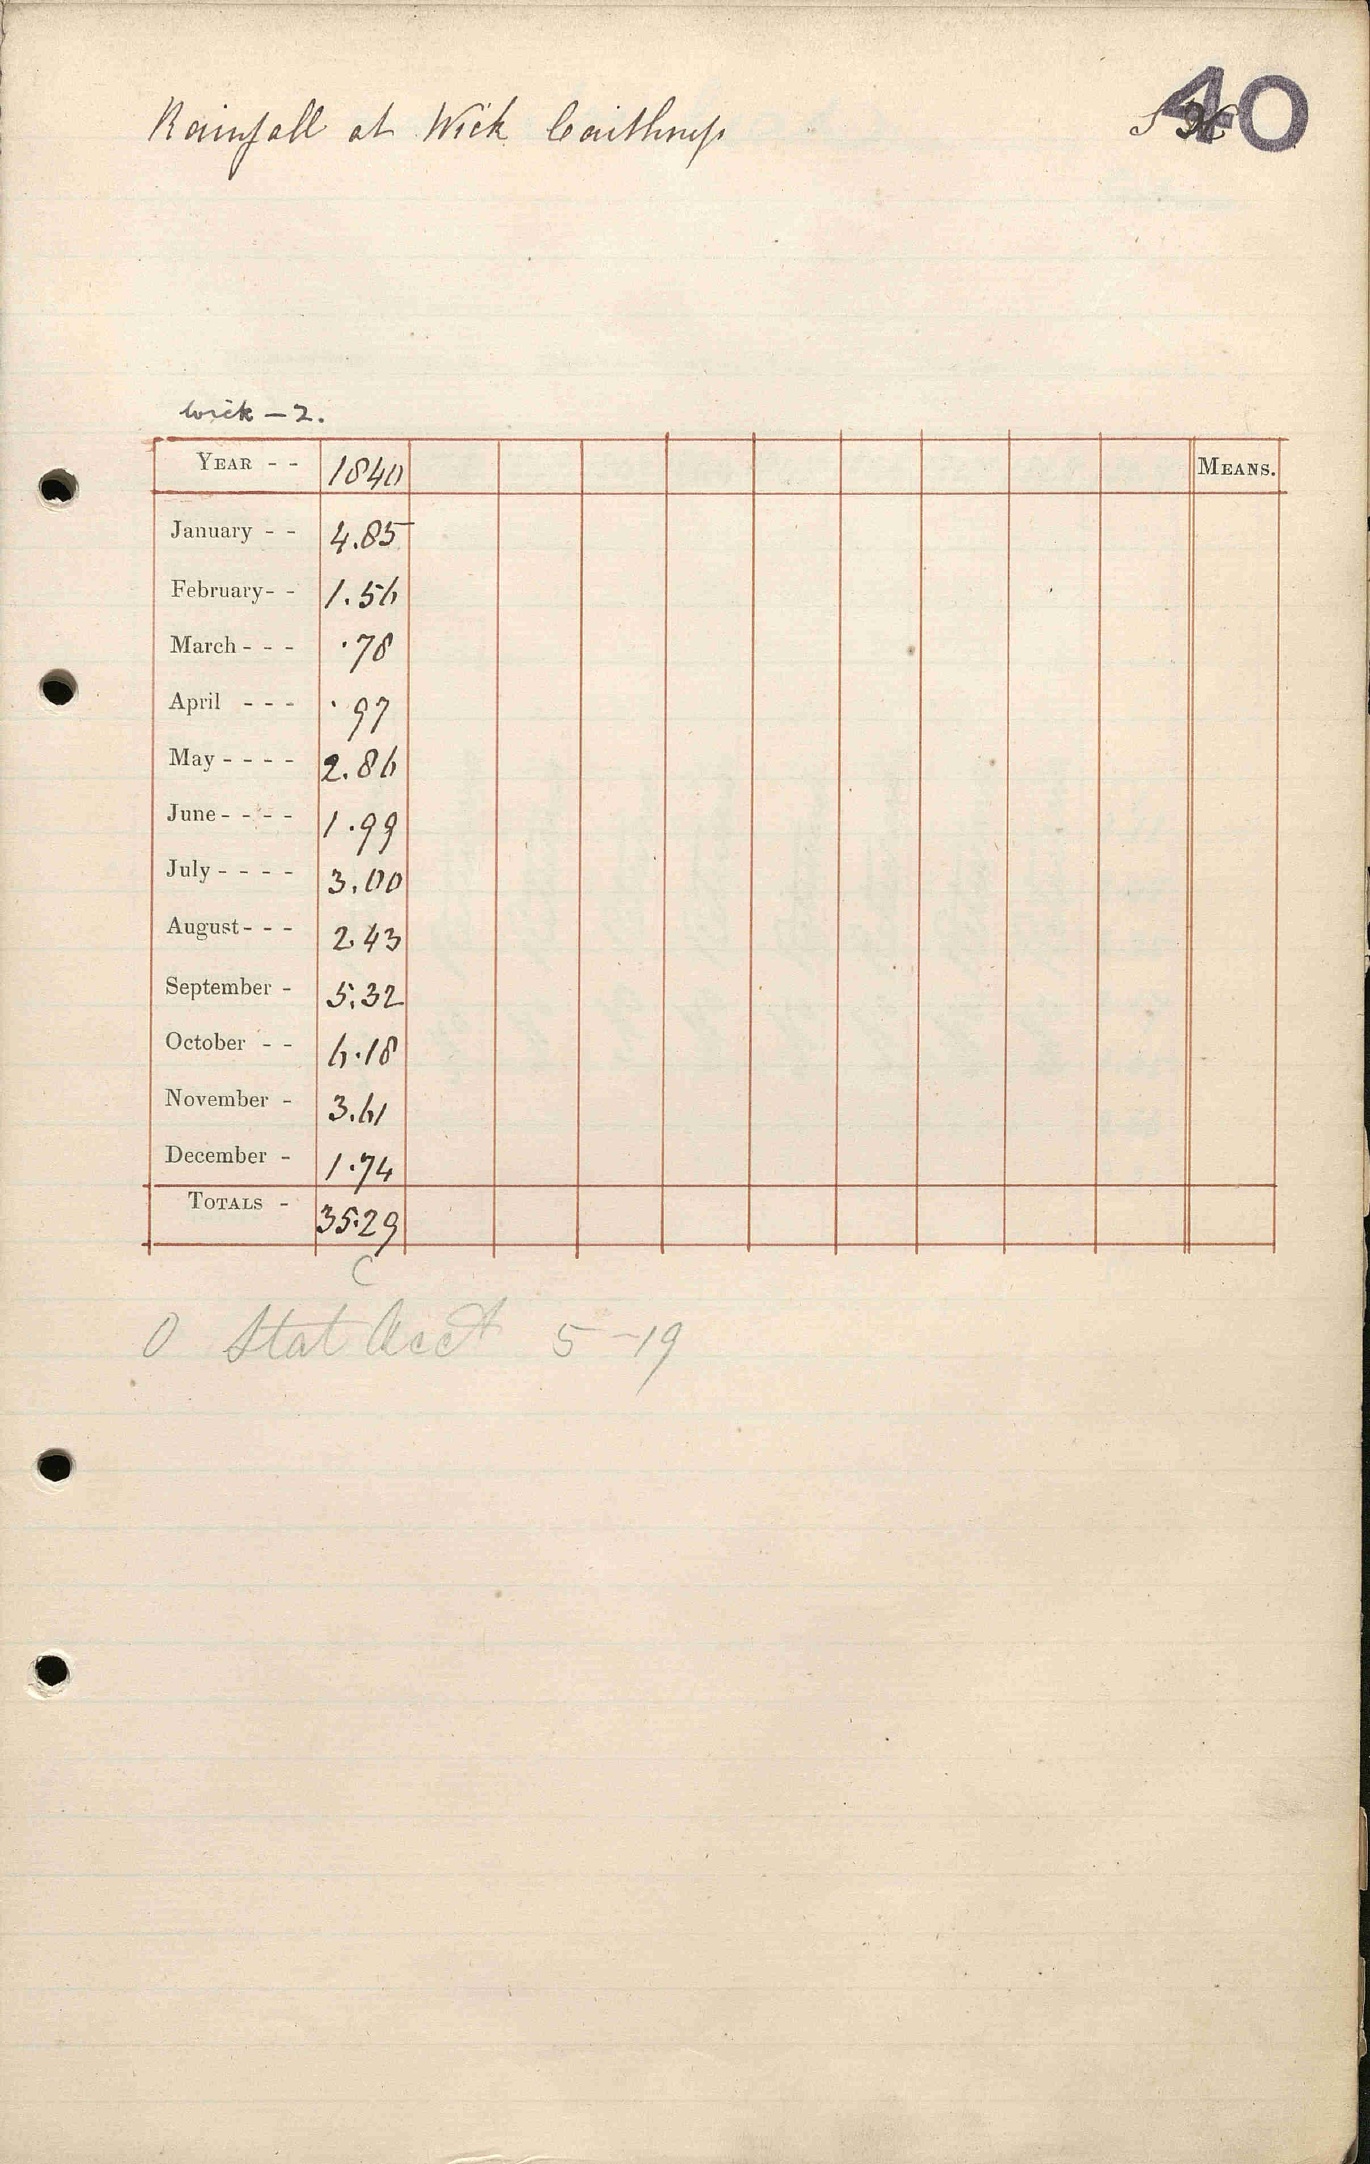 40
Rainfall at Wick Caithness
Wick – 2.
YEAR - - 1840 MEANS.
January - - 4.85
February- - 1.56
March - - - .78
April - - - .97
May - - - - 2.86
June - - - - 1.99
July - - - - 3.00
August - - - 2.43
September - 5.32
October - - 6.18
November - 3.61
December - 1.74
TOTALS - 35.29
C
O Stat Acct 5 – 19